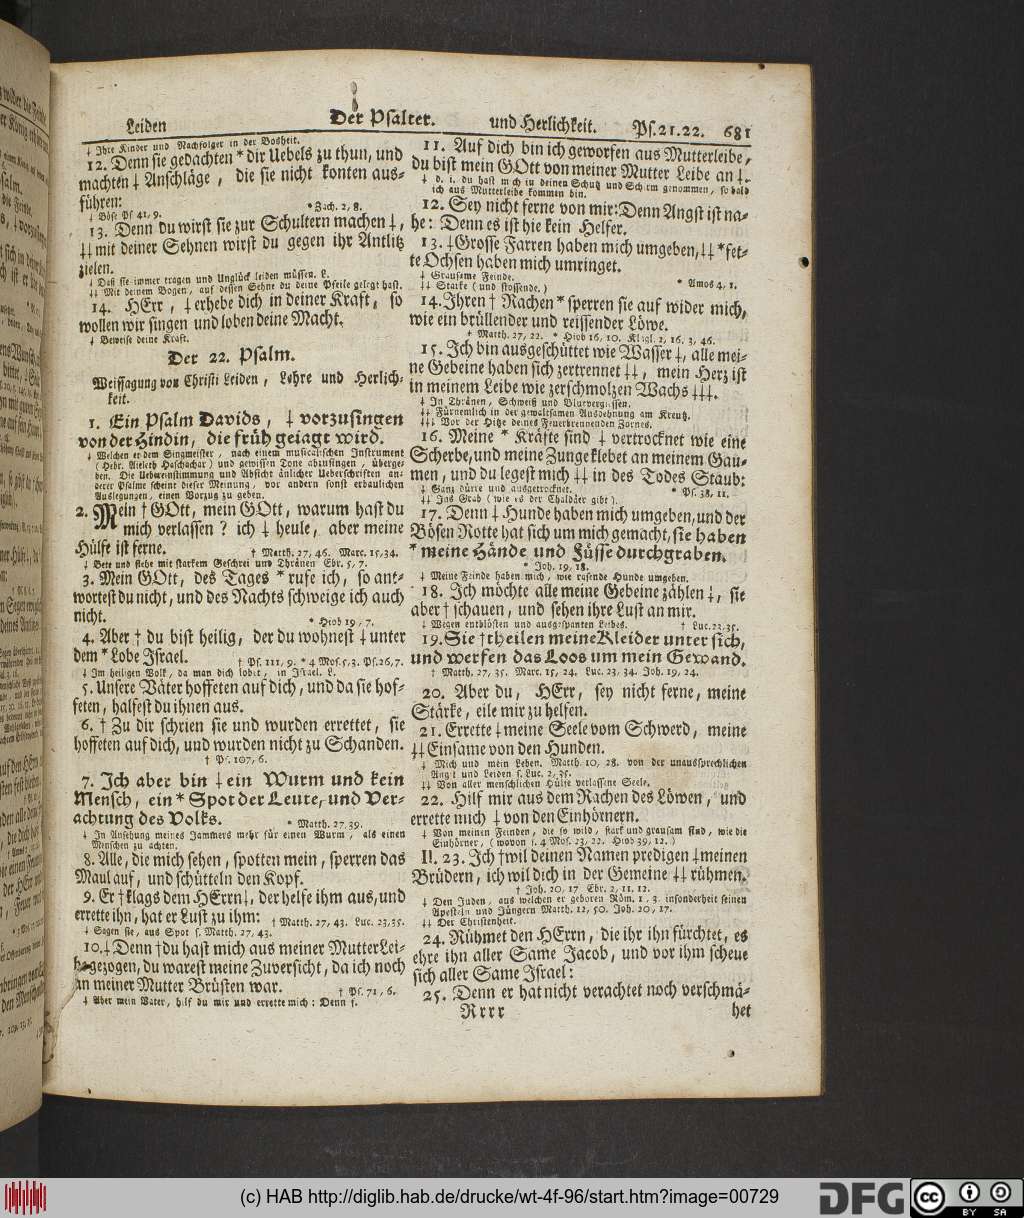 Leiden Der Psalter. und Herlichkeit. Ps. 21. 22. 681
⸸ Ihre Kinder und Nachfolger in der Bosheit.
12. Denn sie gedachten * dir Uebels zu thun, und
machten ⸸ Anschläge, die sie nicht konten aus-
führen:
⸸ Böse Ps 41, 9. * Zach. 2, 8.
13. Denn du wirst sie zur Schultern machen ⸸,
⸸⸸ mit deiner Sehnen wirst du gegen ihr Antlitz
zielen.
⸸ Daß sie immer tragen und Unglück leiden müssen. L.
⸸⸸ Mit deinem Bogen, auf dessen Sehne du deine Pfeile gelegt hast.
14. HErr, ⸸ erhebe dich in deiner Kraft, so
wollen wir singen und loben deine Macht.
⸸ Beweise deine Kraft.
Der 22. Psalm.
Weissagung von Christi Leiden, Lehre und Herlich-
keit.
1. Ein Psalm Davids, ⸸ vorzusingen
von der Hindin, die früh geiagt wird.
⸸ Welchen er dem Singmeister, nach einem musicalischen Instrument
(Hebr. Aieleth Haschachar) und gewissen Tone abzusingen, überge-
ben. Die Uebereinstimmung und Absicht änlicher Ueberschriften an-
derer Psalme scheint dieser Meinung, vor andern sonst erbaulichen
Auslegungen, einen Vorzug zu geben.
2. Mein † GOtt, mein GOtt, warum hast du
mich verlassen? ich ⸸ heule, aber meine
Hülfe ist ferne. † Matth. 27, 46. Marc. 15, 34.
⸸ Bete und flehe mit starkem Geschrei und Thränen Ebr. 5, 7.
3. Mein GOtt, des Tages * rufe ich, so ant-
wortest du nicht, und des Nachts schweige ich auch
nicht. * Hiob 19, 7.
4. Aber † du bist heilig, der du wohnest ⸸ unter
dem * Lobe Israel. † Ps. 111, 9. * 4 Mos. 5, 3. Ps. 26, 7.
⸸ Im heiligen Volk, da man dich lobet, in Israel. L.
5. Unsere Väter hoffeten auf dich, und da sie hof-
feten, halfest du ihnen aus.
6. † Zu dir schrien sie und wurden errettet, sie
hoffeten auf dich, und wurden nicht zu Schanden.
† Ps. 107, 6.
7. Ich aber bin ⸸ ein Wurm und kein
Mensch, ein * Spot der Leute, und Ver-
achtung des Volks. * Matth. 27, 39.
⸸ In Ansehung meines Jammers mehr für einen Wurm, als einen
Menschen zu achten.
8. Alle, die mich sehen, spotten mein, sperren das
Maul auf, und schütteln den Kopf.
9. Er † klags dem HErrn ⸸, der helfe ihm aus, und
errette ihn, hat er Lust zu ihm: † Matth. 27, 43. Luc. 23, 35.
⸸ Sagen sie, aus Spot s. Matth. 27, 43.
10. ⸸ Denn † du hast mich aus meiner Mutter Lei-
be gezogen, du warest meine Zuversicht, da ich noch
an meiner Mutter Brüsten war. † Ps. 71, 6.
⸸ Aber mein Vater, hilf du mir und errette mich: Denn s.
11. Auf dich bin ich geworfen aus Mutterleibe,
du bist mein GOtt von meiner Mutter Leibe an ⸸.
⸸ d. i. du hast mich in deinen Schutz und Schirm genommen, so bald
ich aus Mutterleibe kommen bin.
12. Sey nicht ferne von mir: Denn Angst ist na-
he: Denn es ist hie kein Helfer.
13. ⸸ Grosse Farren haben mich umgeben, ⸸⸸ * fet-
te Ochsen haben mich umringet.
⸸ Grausame Feinde.
⸸⸸ Starke (und stossende.) * Amos 4, 1.
14. Ihren † Rachen * sperren sie auf wider mich,
wie ein brüllender und reissender Löwe.
† Matth. 27, 22. * Hiob 16, 10. Klagl. 2, 16. 3, 46.
15. Ich bin ausgeschüttet wie Wasser ⸸, alle mei-
ne Gebeine haben sich zertrennet ⸸⸸, mein Herz ist
in meinem Leibe wie zerschmolzen Wachs ⸸⸸⸸.
⸸ In Thränen, Schweiß und Blutvergiessen.
⸸⸸ Fürnemlich in der gewaltsamen Ausdehnung am Kreutz.
⸸⸸⸸ Vor der Hitze deines Feuerbrennenden Zornes.
16. Meine * Kräfte sind ⸸ vertrocknet wie eine
Scherbe, und meine Zunge klebet an meinem Gau-
men, und du legest mich ⸸⸸ in des Todes Staub:
⸸ Ganz dürre und ausgetrocknet. * Ps. 38, 11.
⸸⸸ Ins Grab (wie es der Chaldäer gibt).
17. Denn ⸸ Hunde haben mich umgeben, und der
Bösen Rotte hat sich um mich gemacht, sie haben
* meine Hände und Füsse durchgraben.
* Joh. 19, 18.
⸸ Meine Feinde haben mich, wie rasende Hunde umgeben.
18. Ich möchte alle meine Gebeine zählen ⸸, sie
aber † schauen, und sehen ihre Lust an mir.
⸸ Wegen entblösten und ausgespanten Leibes. † Luc. 23, 35.
19. Sie † theilen meine Kleider unter sich,
und werfen das Loos um mein Gewand.
† Matth. 27, 35. Marc. 15, 24. Luc. 23, 34. Joh. 19, 24.
20. Aber du, HErr, sey nicht ferne, meine
Stärke, eile mir zu helfen.
21. Errette ⸸ meine Seele vom Schwerd, meine
⸸⸸ Einsame von den Hunden.
⸸ Mich und mein Leben. Matth. 10, 28. von der unaussprechlichen
Angst und Leiden s. Luc. 2, 35.
⸸⸸ Von aller menschlichen Hülfe verlassene Seele.
22. Hilf mir aus dem Rachen des Löwen, und
errette mich ⸸ von den Einhörnern.
⸸ Von meinen Feinden, die so wild, stark und grausam sind, wie die
Einhörner, (wovon s. 4 Mos. 23, 22. Hiob 39, 12.)
II. 23. Ich † wil deinen Namen predigen ⸸ meinen
Brüdern, ich wil dich in der Gemeine ⸸⸸ rühmen.
† Joh. 20, 17 Ebr. 2, 11. 12.
⸸ Den Juden, aus welchen er geboren Röm. 1, 3. insonderheit seinen
Aposteln und Jüngern Matth. 12, 50. Joh. 20, 17.
⸸⸸ Der Christenheit.
24. Rühmet den HErrn, die ihr ihn fürchtet, es
ehre ihn aller Same Jacob, und vor ihm scheue
sich aller Same Israel:
25. Denn er hat nicht verachtet noch verschmä-
Rrrr het
(c) HAB http://diglib.hab.de/drucke/wt-4f-96/start.htm?image=00729
DFG cc BY SA